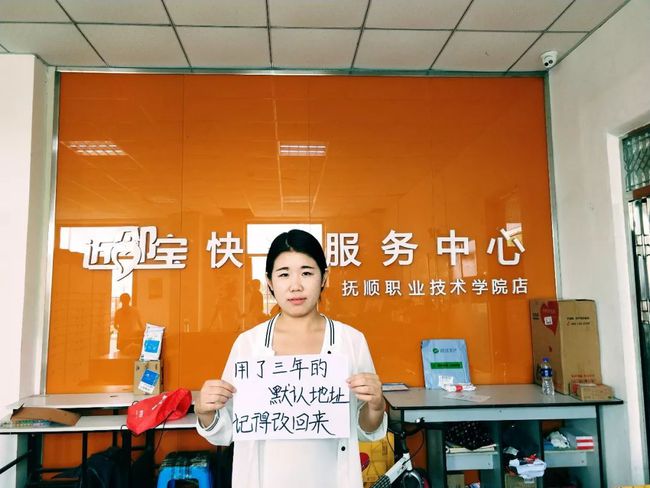 近邻宝 快 服务中心
抚顺职业技术学院店
用了三年的
默认地址
记得改回来